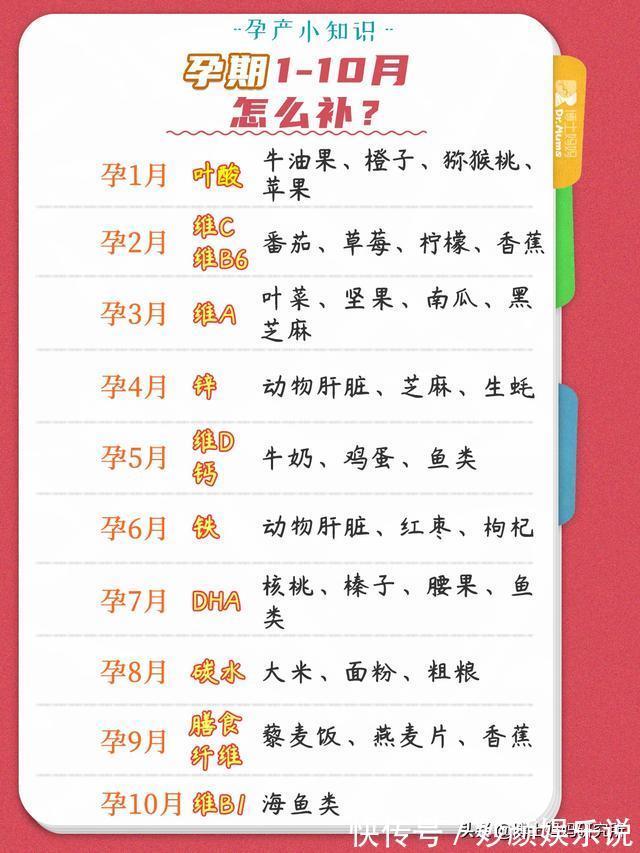 孕产小知识
孕期1-10月
怎么补？
博士妈妈
Dr.Mums
孕1月 叶酸 牛油果、橙子、猕猴桃、
苹果
孕2月 维C 维B6 番茄、草莓、柠檬、香蕉
孕3月 维A 叶菜、坚果、南瓜、黑
芝麻
孕4月 锌 动物肝脏、芝麻、生蚝
孕5月 维D 钙 牛奶、鸡蛋、鱼类
孕6月 铁 动物肝脏、红枣、枸杞
孕7月 DHA 核桃、榛子、腰果、鱼
类
孕8月 碳水 大米、面粉、粗粮
孕9月 膳食 纤维 藜麦饭、燕麦片、香蕉
孕10月 维B1 海鱼类
快传号/妙颜娱乐说